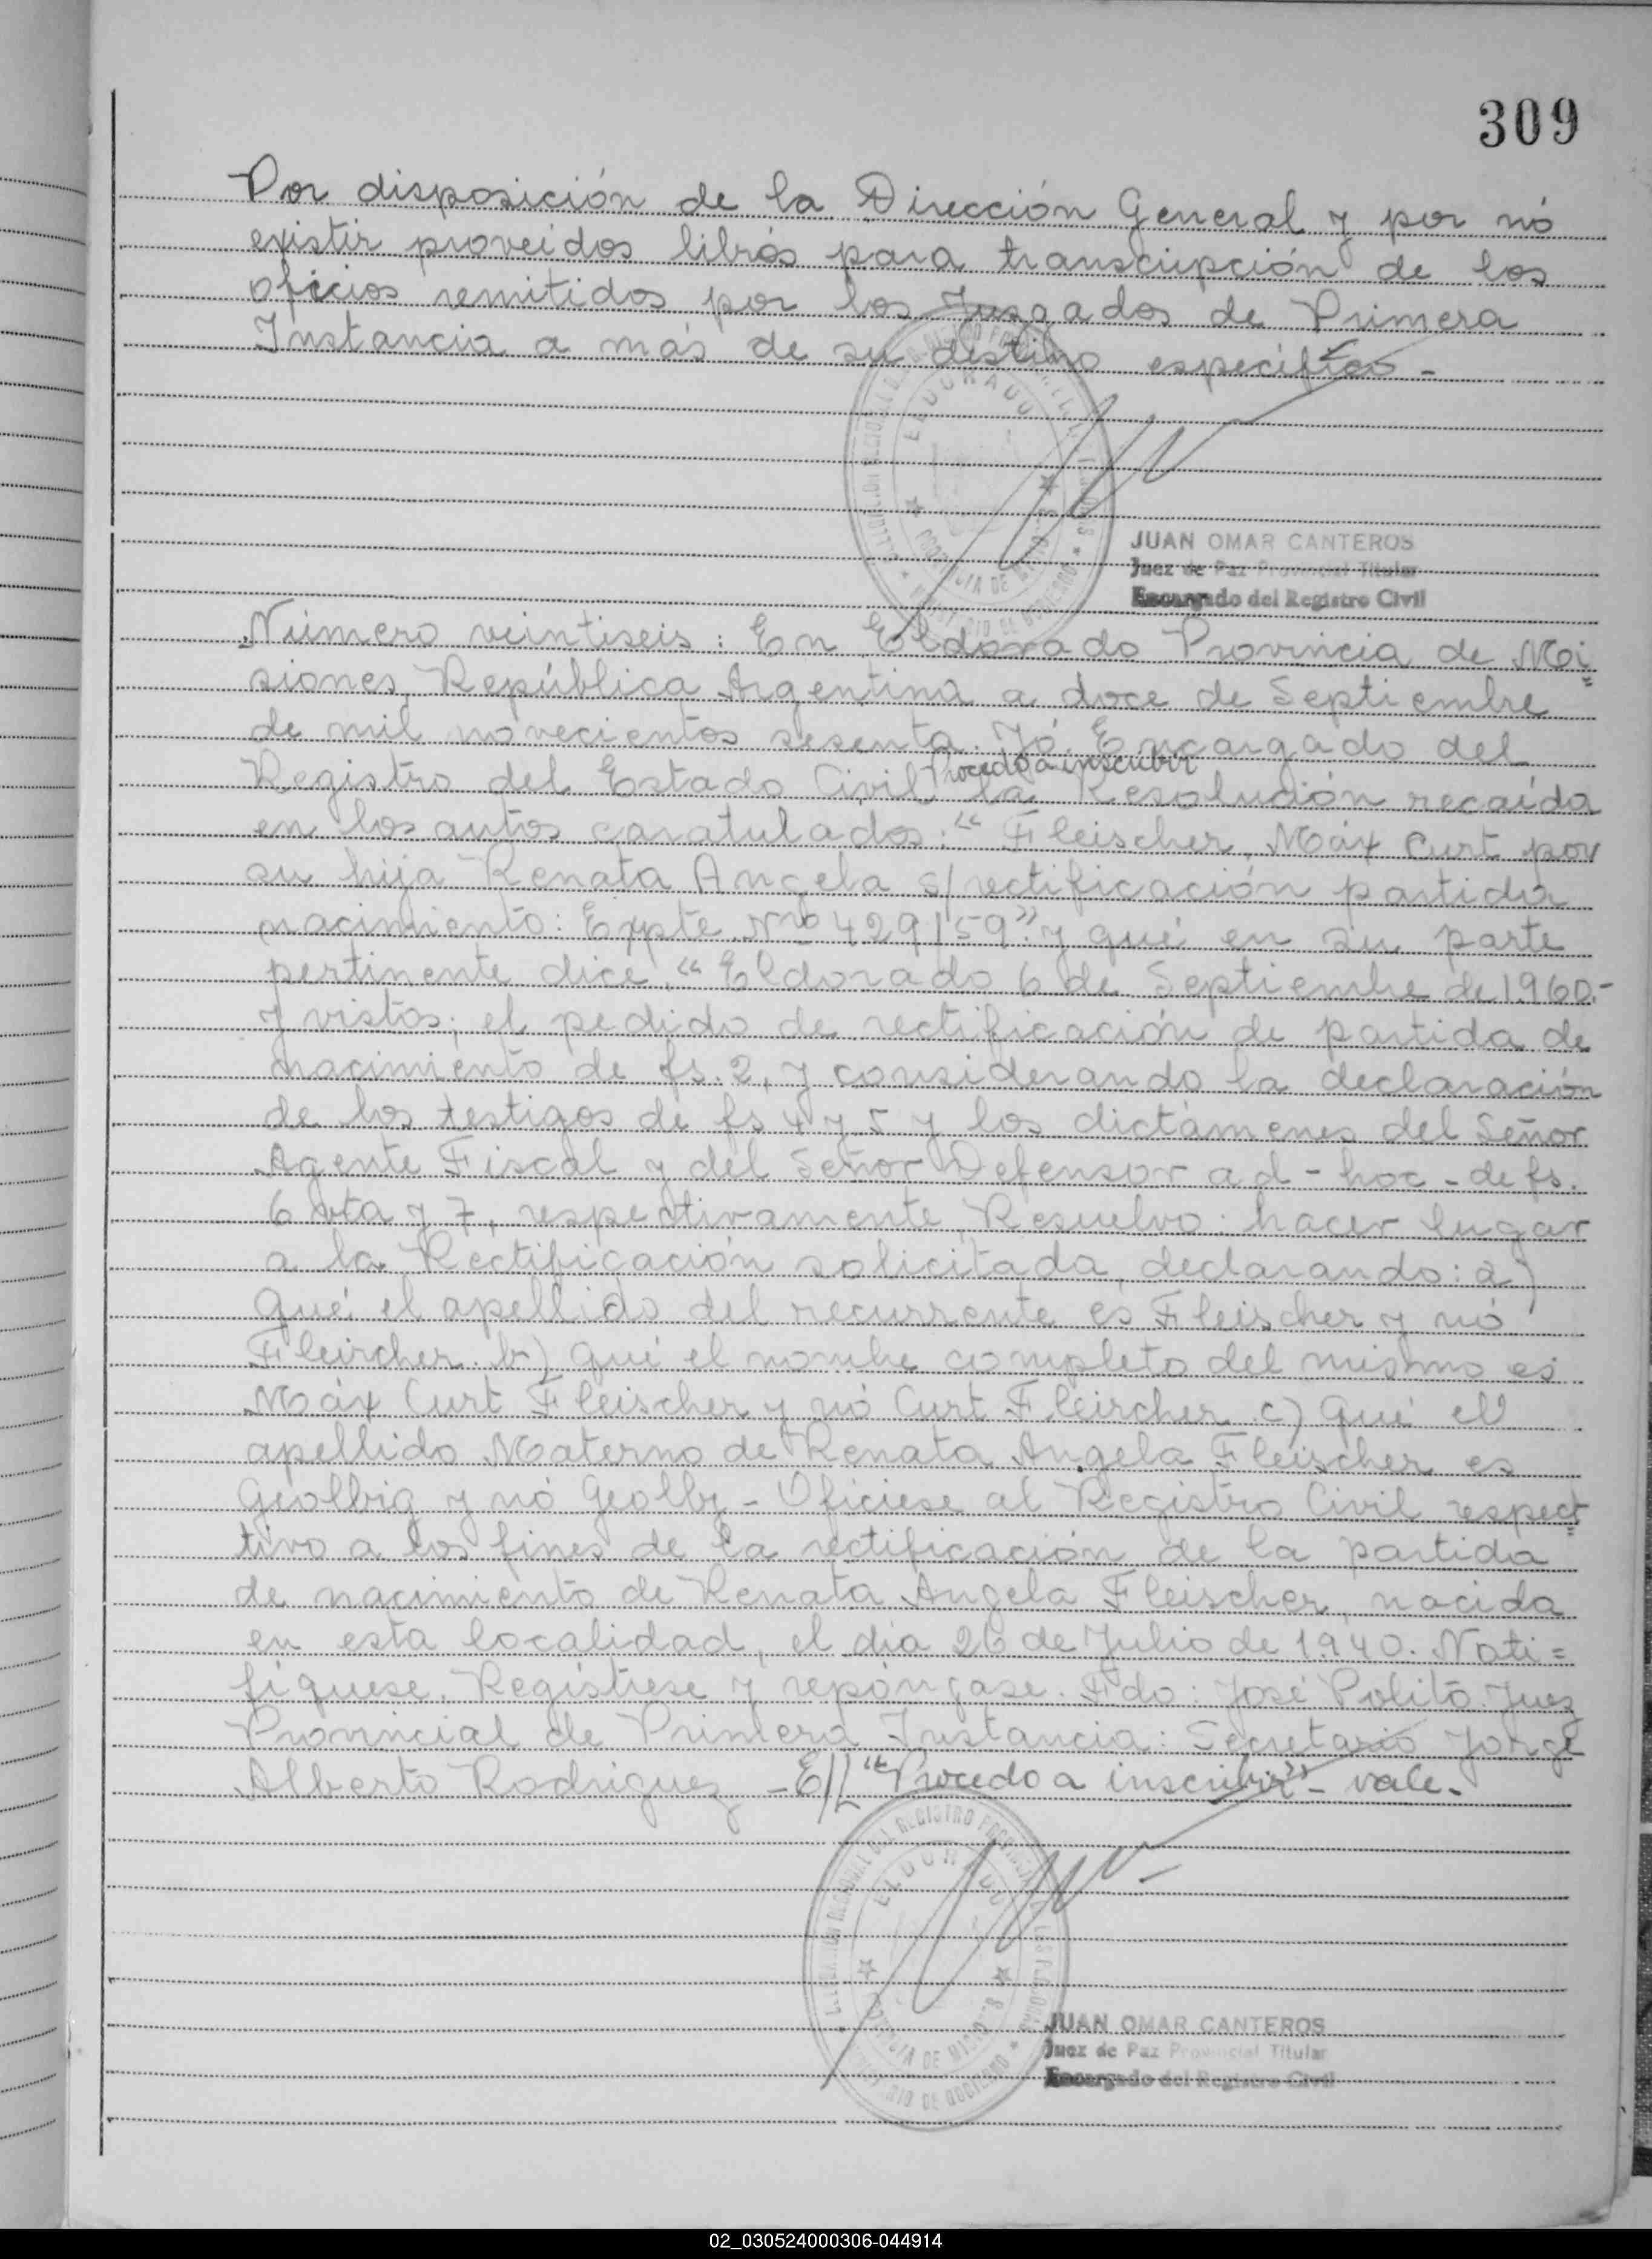 309
Por disposición de la Dirección General y por nó
existir proveídos librós para transcripción de los
oficios remitidos por los Jusgados de Primera
Instancia a más de su destino especifico -
ELDORADO
JUAN OMAR CANTEROS
Juez de Paz Provincial Titular
Encargado del Registro Civil
Número veintiseis: En Eldorado Provincia de Mi=
siones, República Argentina a doce de Septiembre
de mil novecientos sesenta. Yó. Encargado del
Procedo a inscribir
Registro del Estado Civil la Resolución recaída
en los autos caratulados: "Fleischer, Máx Curt por
su hija Renata Angela s/rectificación partida
nacimiento: Expte Nro 429/59". y qué en su parte
pertinente dice, "Eldorado 6 de Septiembre de 1960.-
y vistos; el pedido de rectificación de partida de
nacimiento de fs. 2, y considerando la declaración
de los testigos de fs 4 y 5 y los dictámenes del Señor
Agente Fiscal y del Señor Defensor ad-hoc - de fs.
6 vta y 7, respectivamente, Resuelvo: hacer lugar
a la Rectificación solicitada, declarando: a)
Qué el apellido del recurrente es Fleischer y nó
Fleircher. b) Qué el nombre completo del mismo es
Máx Curt Fleischer y nó Curt Fleircher. c) Qué el
apellido Materno de Renata Angela Fleischer es
Geolbig y nó Geolby - Ofíciese al Registro Civil respect=
tivo a los fines de la rectificación de la partida
de nacimiento de Renata Angela Fleischer, nacida
en esta localidad, el día 26 de Julio de 1.940. Noti=
fíquese. Regístrese y repóngase. Fdo: José Polito. Juez
Provincial de Primera Instancia: Secretario Jorge
Alberto Rodriguez - E/L "Procedo a inscribir" - vale.
JUAN OMAR CANTEROS
Juez de Paz Provincial Titular
Encargado del Registro Civil
02_030524000306-044914